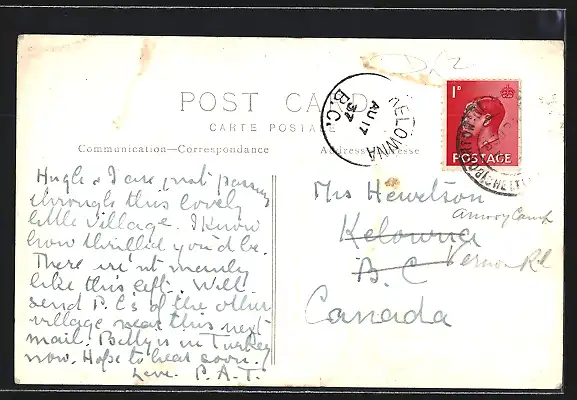 POST CARD
CARTE POSTALE
Communication—Correspondance
Address
KELOWNA
AU 17
37
B.C.
1D
POSTAGE
Hugh & I are just passing
through this lovely
little village. I know
how thrilled you'd be.
There isn't many
like this left. Will
send P.C's of the other
village near this next
mail. Betty is in Turkey
now. Hope to hear soon.
Love. P.A.T.
Mrs Hewetson
Kelowna
B.C
Vernon Rd
Canada